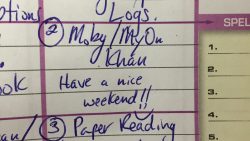 ptions
Logs.
② Moby/MyOn
Khan
Have a nice
weekend!!
ook
an/
③ Paper Reading
SPEL
1.
2.
3.
4.
5.